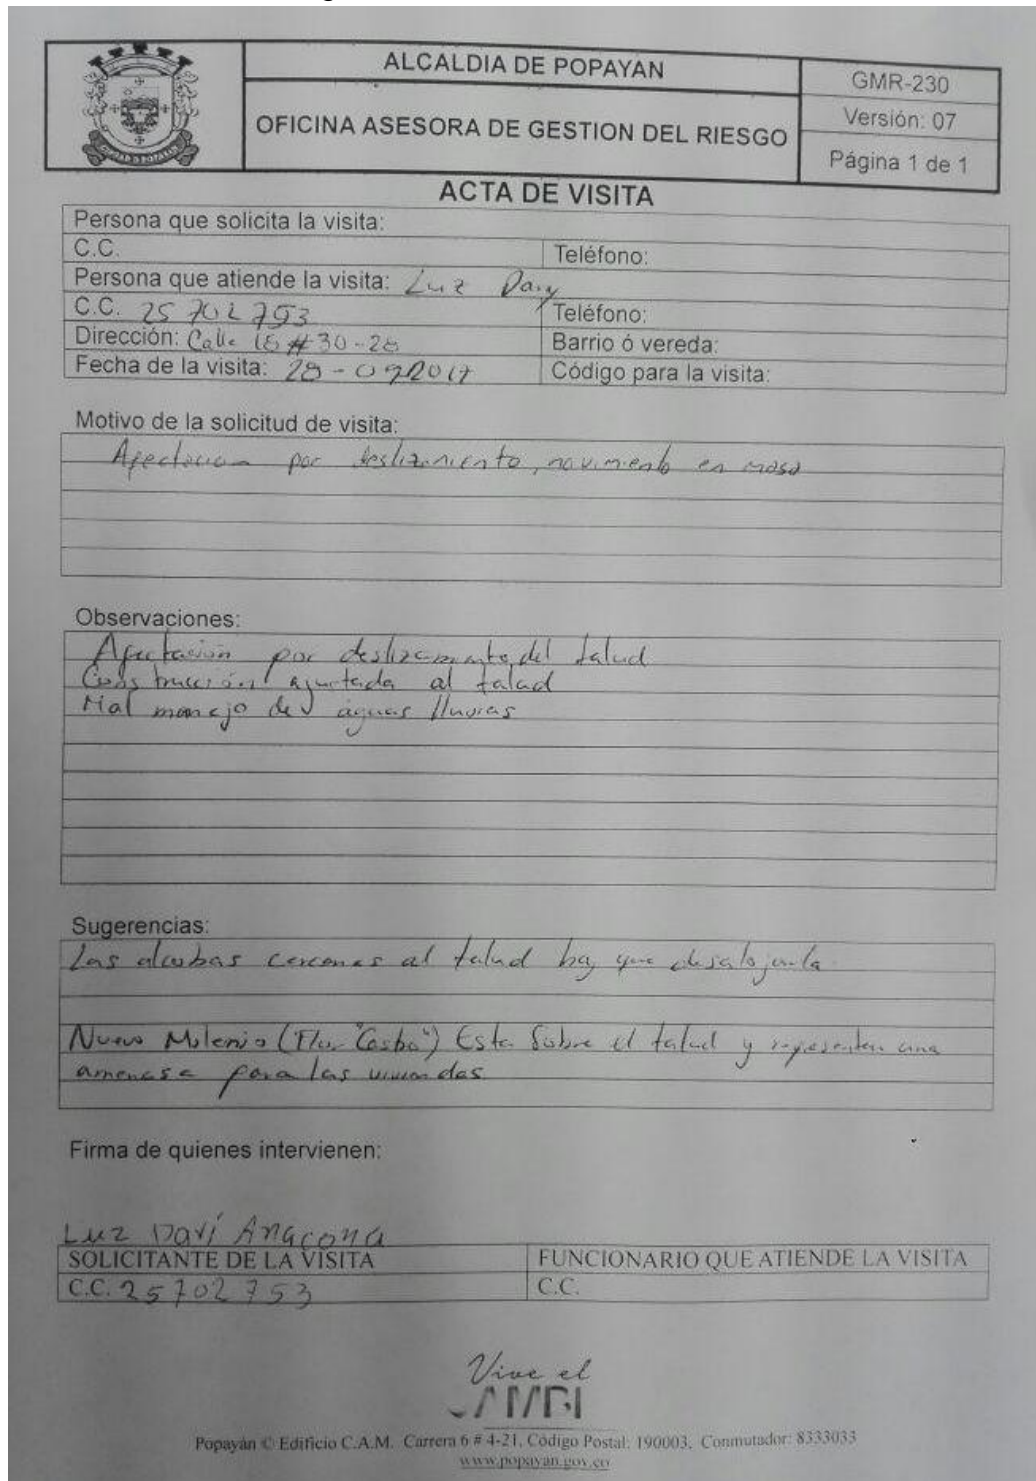 ALCALDIA DE POPAYAN
OFICINA ASESORA DE GESTION DEL RIESGO
GMR-230
Versión: 07
Página 1 de 1
ACTA DE VISITA
Persona que solicita la visita:
C.C. Teléfono:
Persona que atiende la visita: Luz Dary
C.C. 25702753 Teléfono:
Dirección: Calle 18 # 30-28 Barrio ó vereda:
Fecha de la visita: 28-092017 Código para la visita:
Motivo de la solicitud de visita:
Afectacion por deslizamiento, movimiento en masa
Observaciones:
Afectación por deslizamiento del talud
Construcción ajustada al talud
Mal manejo de aguas lluvias
Sugerencias:
Las alcobas cercanas al talud hay que desalojarla
Nuevo Milenio (Flor "Casba") Esta Sobre el talud y representan una
amenasa para las viviendas
Firma de quienes intervienen:
Luz Daví Anacona
SOLICITANTE DE LA VISITA FUNCIONARIO QUE ATIENDE LA VISITA
C.C. 25702753 C.C.
Vive el
Popayán © Edificio C.A.M. Carrera 6 # 4-21, Código Postal: 190003, Conmutador: 8333033
www.popayan.gov.co